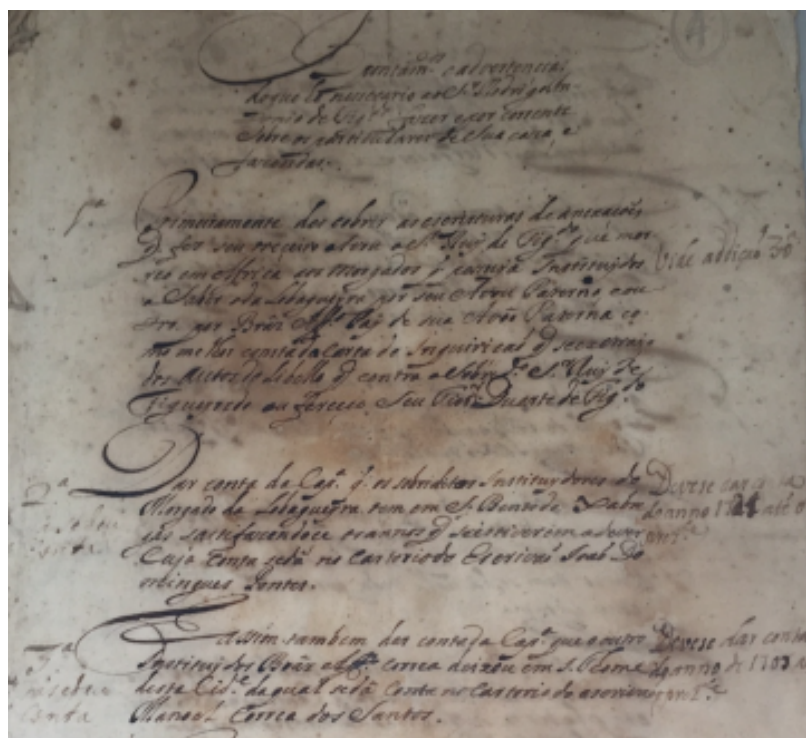 4
e advertencias
do que he necessario ao Sr. Rodrigo An-
tonio de Figdo. fazer e por corrente
Sobre os particulares de Sua caza, e
fazendas.
1ª
Primeiramente descobrir as escrituras de anexações
q̃ fez seu treceiro Avou o Sr. Ruy de Figdo. que mor-
reo em Africa aos Morgados q̃ Instituidos
a Saber o da Lobagueyra por seu Avou Paterno e ou-
tro por Brás Pay de sua Avó Paterna co-
mo melhor consta da Carta de Inquiriçaõ q̃
dos Autos de Libello q̃ contra o Sobrº. Sr. Ruy de
Figueyredo Seu Duarte de Figdo.
Vide adiçaõ 30
2ª
Dar conta da Capª. q̃. os sobreditos Instituidores do
Morgado da Lobagueyra tem em S. Bento de Xabre-
gas satisfazendoce os annos q̃ se estiverem a dever
Cuja Conta se dá no Cartorio do Escrivaõ Joaõ Do-
mingues Pontes.
conta
Devese
do anno 1721 até o
3ª
E assim tambem dar conta da Capª. que o outro
Instituidor Brás Correa deixou em S. Thome
desta Cidª. da qual se dá Conta no Cartorio do escrivaõ
Manoel Correa dos Santos.
conta
Devese dar conta
do anno de 1703